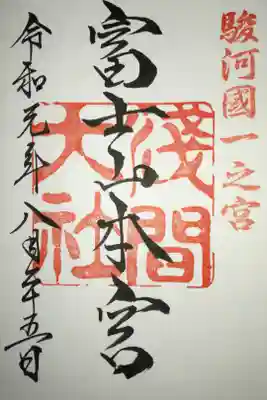 駿河國一之宮
富士山本宮
淺間大社
令和元年八月廿五日